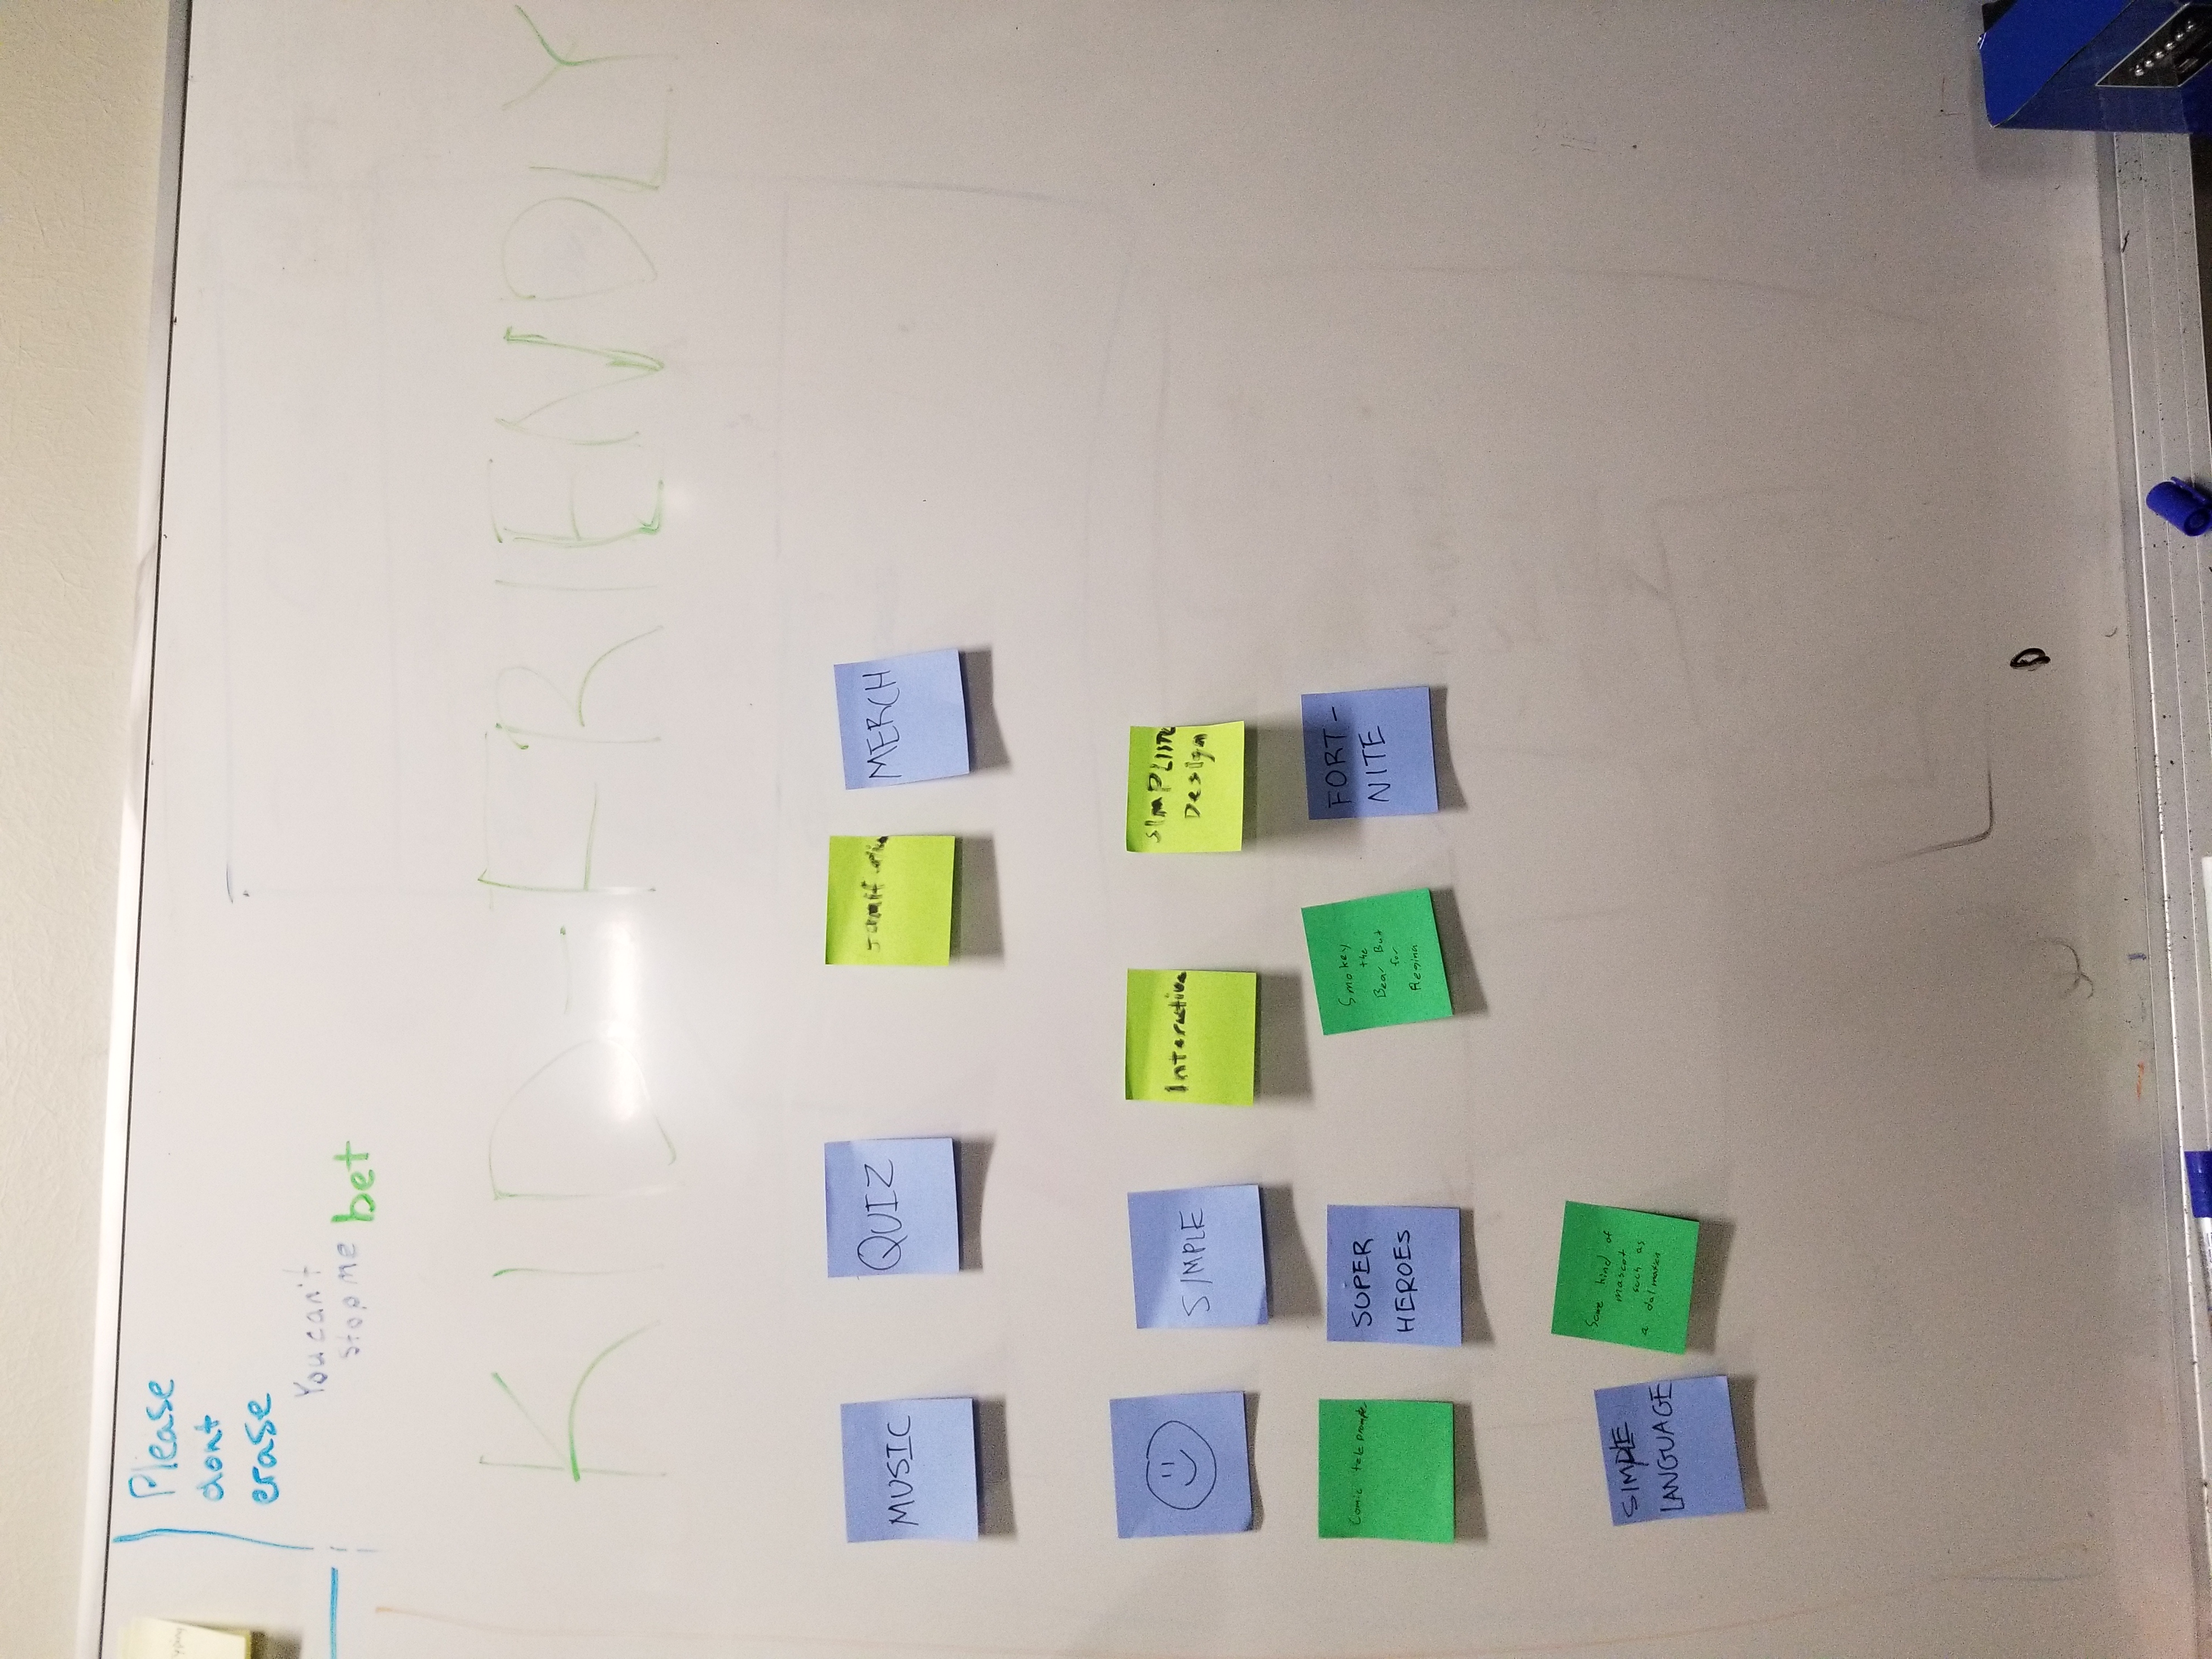 Please
dont
erase
You can't
stop me
bet
KID-FRIENDLY
MUSIC
QUIZ
MERCH
SIMPLE
Interactive
Design
Comic
SUPER
HEROES
Smokey
the
Bear But
for
Regina
FORT-
NITE
SIMPLE
LANGUAGE
Some kind of
mascot
such as
a dalmatian